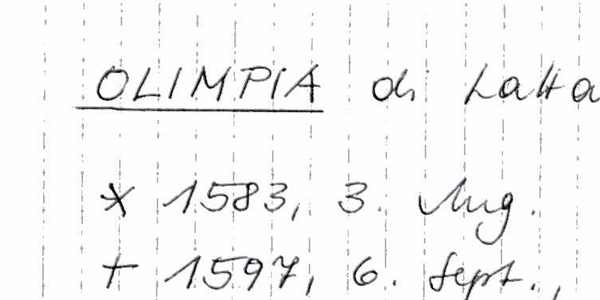 OLIMPIA di Latta
* 1583, 3. Aug.
† 1597, 6. Sept.,